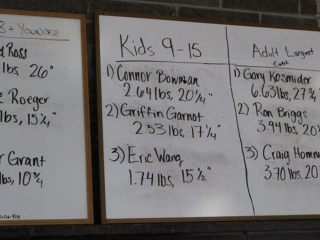 8 + YOUNGER
Ross
lbs, 26"
Roeger
lbs, 15 1/4"
Grant
lbs, 10 3/4
Kids 9-15
1) Connor Bowman
2.64 lbs, 20 1/4"
2) Griffin Garnot
2.53 lbs, 17 1/4"
3) Eric Wang
1.74 lbs, 15 1/2"
Adult Largest
1) Gary Kosmider
6.63 lbs, 27 3/4"
2) Ron Briggs
3.94 lbs, 20
3) Craig Homn
3.70 lbs, 20